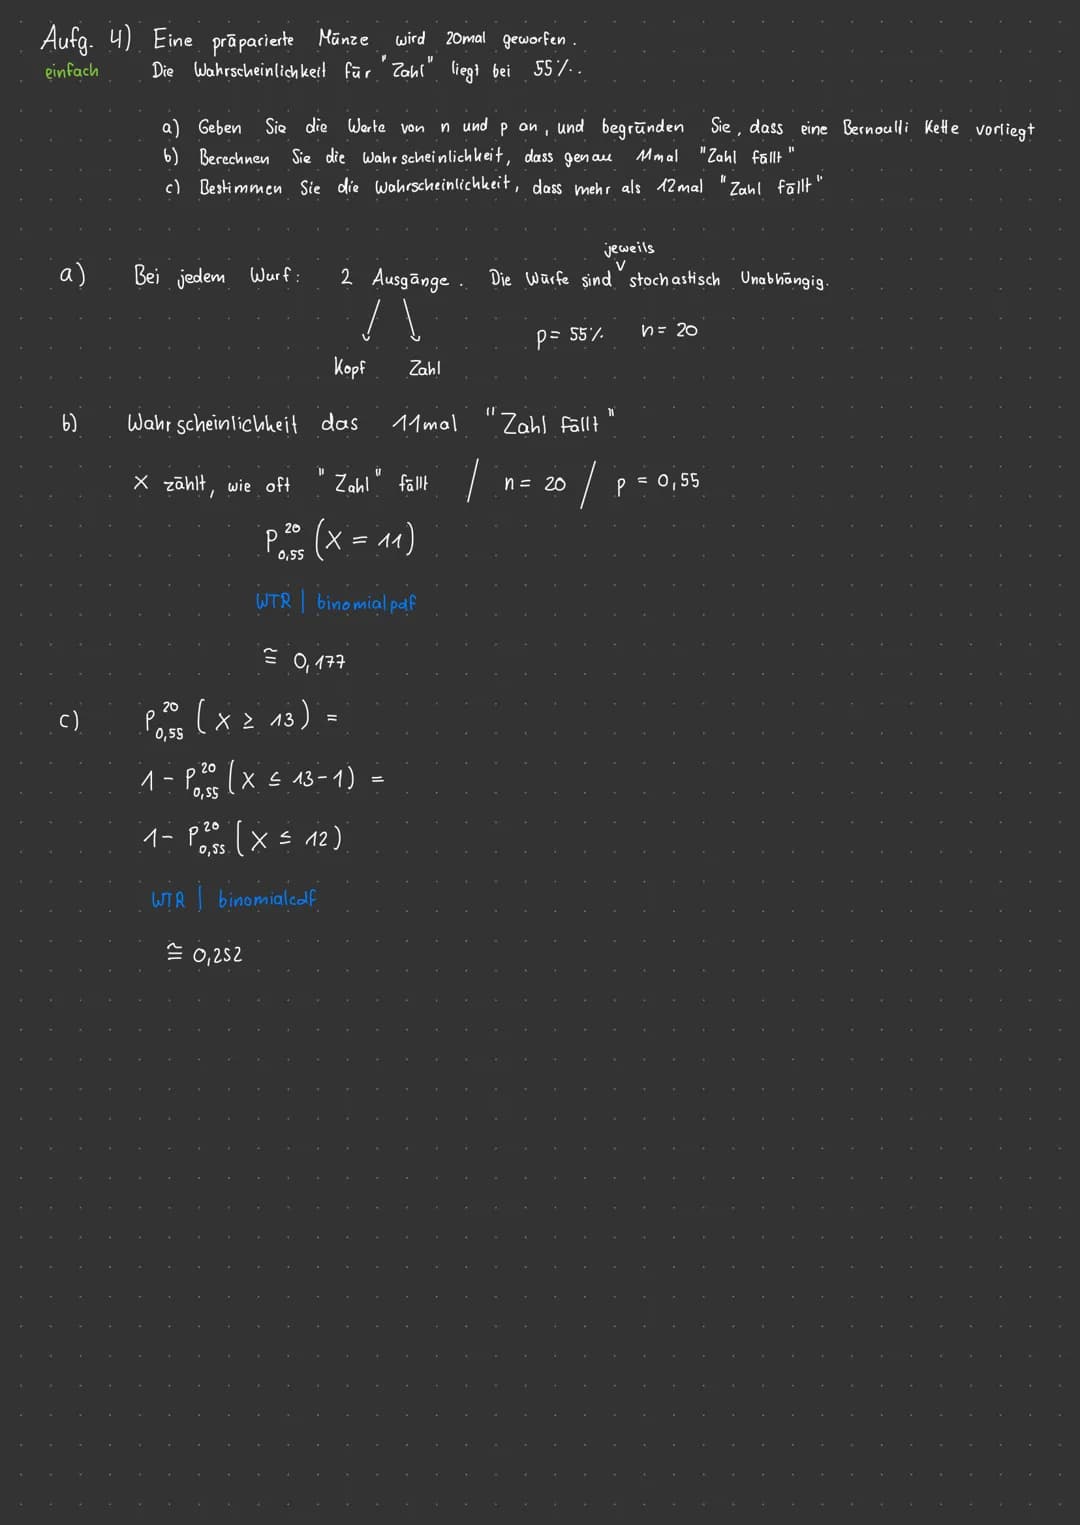 Aufg. 4) Eine präparierte Münze wird 20mal geworfen.
einfach Die Wahrscheinlichkeit für "Zahl" liegt bei 55%.
a) Geben Sie die Werte von n und p an, und begründen Sie, dass eine Bernoulli Kette vorliegt
b) Berechnen Sie die Wahrscheinlichkeit, dass genau 11mal "Zahl fällt"
c) Bestimmen Sie die Wahrscheinlichkeit, dass mehr als 12mal "Zahl fällt"
jeweils
a) Bei jedem Wurf: 2 Ausgänge. Die Würfe sind ∨ stochastisch Unabhängig.
p = 55% n = 20
Kopf Zahl
b) Wahrscheinlichkeit das 11mal "Zahl fällt"
X zählt, wie oft "Zahl" fällt / n = 20 / p = 0,55
P²⁰₀,₅₅ (X = 11)
WTR | binomialpdf
≅ 0,177
c) P²⁰₀,₅₅ (X ≥ 13) =
1 - P²⁰₀,₅₅ (X ≤ 13-1) =
1 - P²⁰₀,₅₅ (X ≤ 12)
WTR | binomialcdf
≅ 0,252